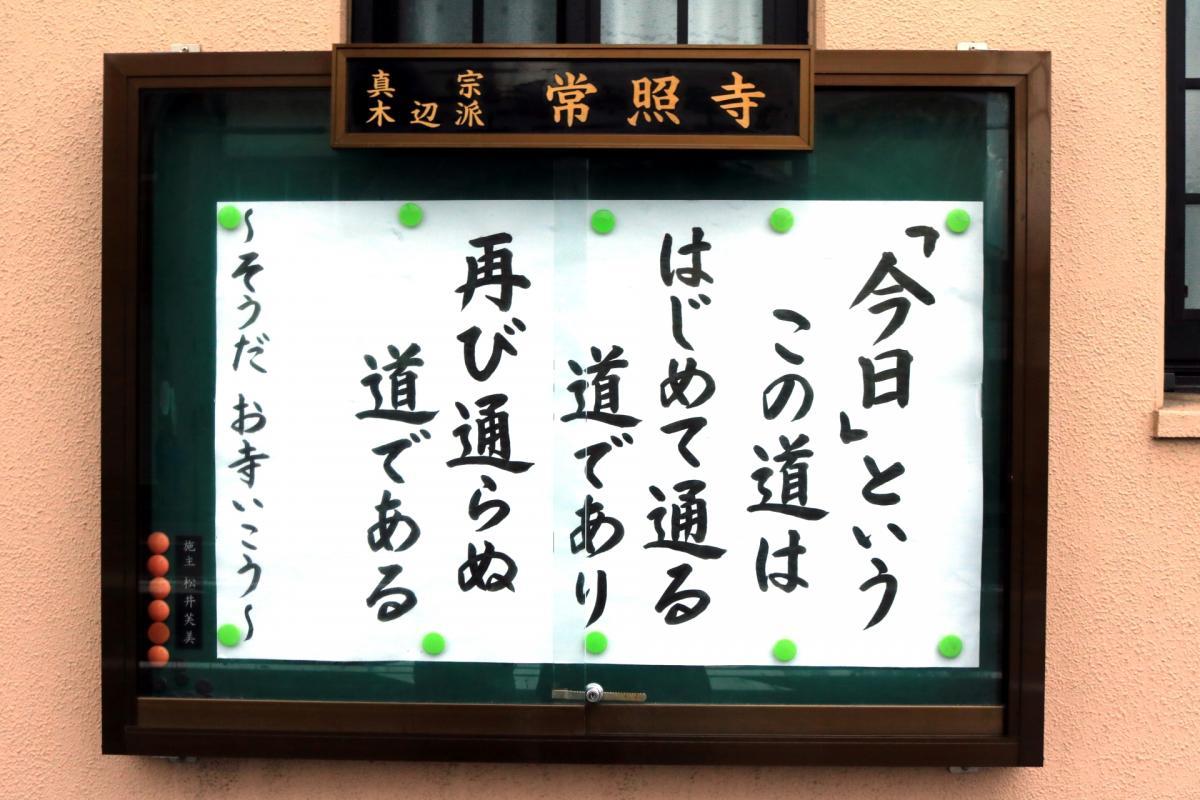 真宗
木辺派
常照寺
「今日」という
この道は
はじめて通る
道であり
再び通らぬ
道である
～そうだ お寺いこう～
施主 松井芙美